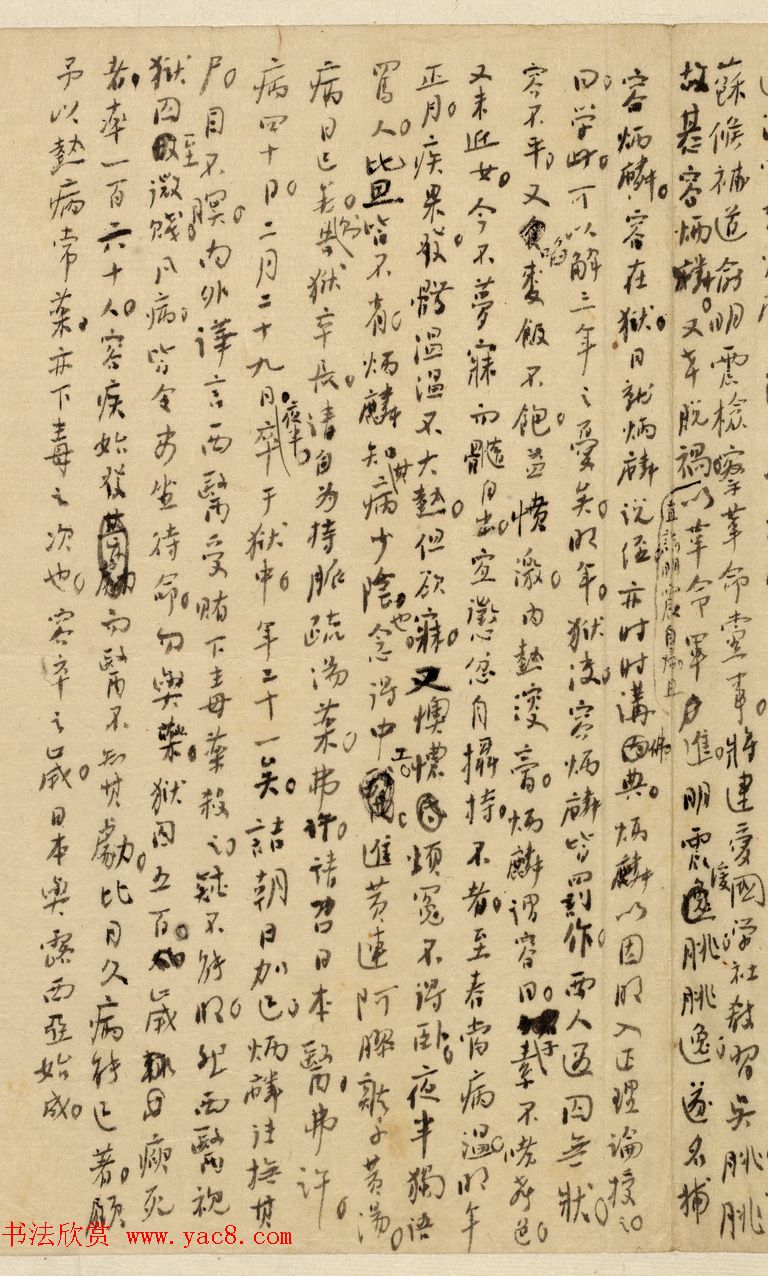 蘇候補道俞明震檢察革命黨事。將逮愛國學社教習吳朓。朓
故惎容炳麟。又幸脫禍。直詣明震自歸且以革命軍進。明震緩朓。朓逸。遂名捕
容炳麟。容在獄。日就炳麟說經。亦時時講佛典。炳麟以因明入正理論授之。
曰。學此。可以解三年之憂矣。明年。獄決。容炳麟皆罰作。西人遇囚無狀。
容不平。又啗麥飯不飽。益憤激。內熱溲膏。炳麟謂容曰。子素不嗜聲色。
又未近女。今不夢寐而髓自出。宜懲忿自攝持。不者。至春當病溫。明年
正月。疾果發。體溫溫不大熱。但欲寐。又懊憹煩冤不得臥。夜半獨語
罵人。比旦皆不省。炳麟知其病少陰也。念得中工。進黃連阿膠雞子黃湯。
病日已矣。則告獄卒長。請自為持脈疏湯藥。弗許。請召日本醫。弗許。
病四十日。二月二十九日。夜半。卒于獄中。年二十一矣。詰朝日加巳。炳麟往撫其
尸。目不瞑。內外譁言西醫受賄下毒藥殺之。疑不能明。然西醫視
獄囚至微賤。凡病。皆令安坐待命。勿與藥。獄囚五百。歲瘐死
者。率一百六十人。容疾始發。而醫不知其劇。比日久。病能已著。顧
予以熱病常藥。亦下毒之次也。容卒之歲。日本與露西亞始成。
书法欣赏 www.yac8.com